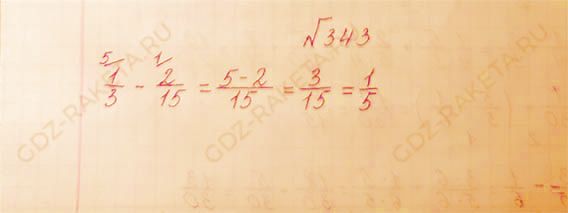 √343
1/3 5/ - 2/15 1/ = 5-2/15 = 3/15 = 1/5
GDZ-RAKETA.RU
GDZ-RAKETA.RU
GDZ-RAKETA.RU
GDZ-RAKETA.RU